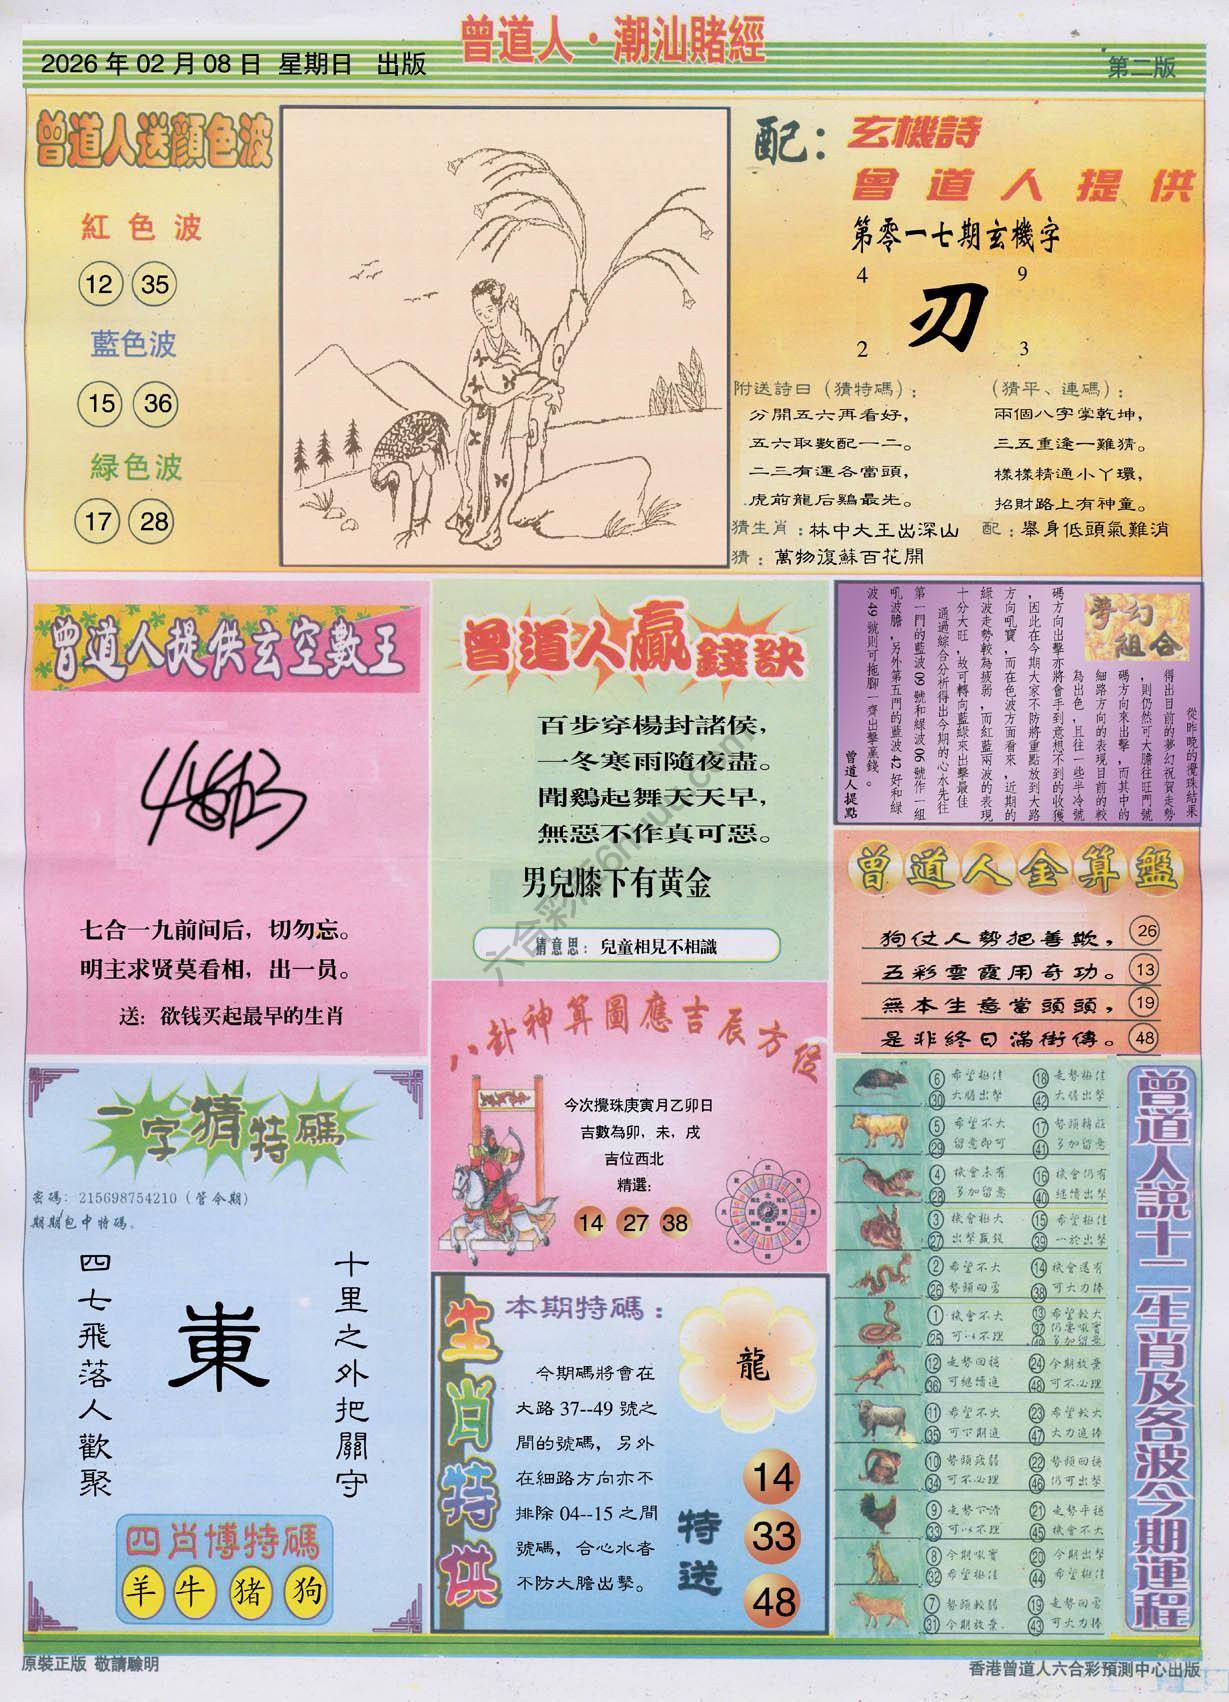 曾道人·潮汕賭經
2026 年 02 月 08 日 星期日 出版
第二版
曾道人送顏色波
紅色波
12 35
藍色波
15 36
緑色波
17 28
配：玄機詩
曾道人提供
第零一七期玄機字
4 9
刃
2 3
附送詩曰（猜特碼）：
分開五六再看好，
五六取數配一二。
二三有運各當頭，
虎前龍后鷄最先。
（猜平、連碼）：
兩個八字掌乾坤，
三五重逢一難猜。
樣樣精通小丫環，
招財路上有神童。
猜生肖：林中大王出深山
配：舉身低頭氣難消
猜：萬物復蘇百花開
曾道人提供玄空數王
七合一九前间后，切勿忘。
明主求贤莫看相，出一员。
送：欲钱买起最早的生肖
曾道人贏錢訣
百步穿楊封諸侯，
一冬寒雨隨夜盡。
聞鷄起舞天天早，
無惡不作真可惡。
男兒膝下有黄金
猜意思：兒童相見不相識
夢幻組合
從昨晚的攪珠結果
得出目前的夢幻祝賀走勢
，則仍然可大膽往旺門號
碼方向來出擊，而其中的
細路方向的表現目前的較
為出色，且往一些半冷號
碼方向出擊亦將會手到意想不到的收獲
，因此在今期大家不防將重點放到大路
方向吼寶，而在色波方面看來，近期的
綠波走勢較為疲弱，而紅藍兩波的表現
十分大旺，故可轉向藍綠來出擊最佳
通過綜合分析得出今期的心水先往
第一門的藍波 09 號和綠波 06 號作一組
吼波膽，另外第五門的藍波 42 好和綠
波 49 號則可拖腳一齊出擊贏錢。
曾道人提點
曾道人金算盤
狗仗人勢把善欺， 26
五彩雲霞用奇功。 13
無本生意當頭頭， 19
是非終日滿街傳。 48
八卦神算圖應吉辰方位
今次攪珠庚寅月乙卯日
吉數為卯，未，戌
吉位西北
精選：
14 27 38
一字猜特碼
密碼：215698754210（管今期）
期期包中特碼。
十里之外把關守
東
四七飛落人歡聚
四肖博特碼
羊 牛 猪 狗
生肖特供
本期特碼：
龍
今期碼將會在
大路 37--49 號之
間的號碼，另外
在細路方向亦不
排除 04--15 之間
號碼，合心水者
不防大膽出擊。
特送
14
33
48
曾道人説十二生肖及各波今期運程
6 希望極佳 18 走勢極佳
30 大膽出擊 42 大膽出擊
5 希望不大 17 勢頭精莊
29 留意即可 41 多加留意
4 機會未有 16 機會仍有
28 多加留意 40 繼續出擊
3 機會極大 15 希望極佳
27 出擊贏錢 39 一於出擊
2 希望不大 14 機會還有
26 勢頭回勇 38 可大力捧
1 機會不大 13 希望較大
25 可以不理 37 仍要吼實
49 多加留意
12 走勢回穩 24 今期放棄
36 可繼續追 48 可不必理
11 希望不大 23 希望較大
35 可下期追 47 大力追捧
10 勢頭疲弱 22 勢頭回穩
34 可不必理 46 仍可出擊
9 走勢下滑 21 走勢平穩
33 可以不理 45 機會不大
8 今期吼實 20 今期出擊
32 希望極佳 44 希望極佳
7 勢頭較弱 19 走勢回勇
31 今期放棄 43 可大力捧
原裝正版 敬請驗明
香港曾道人六合彩預測中心出版